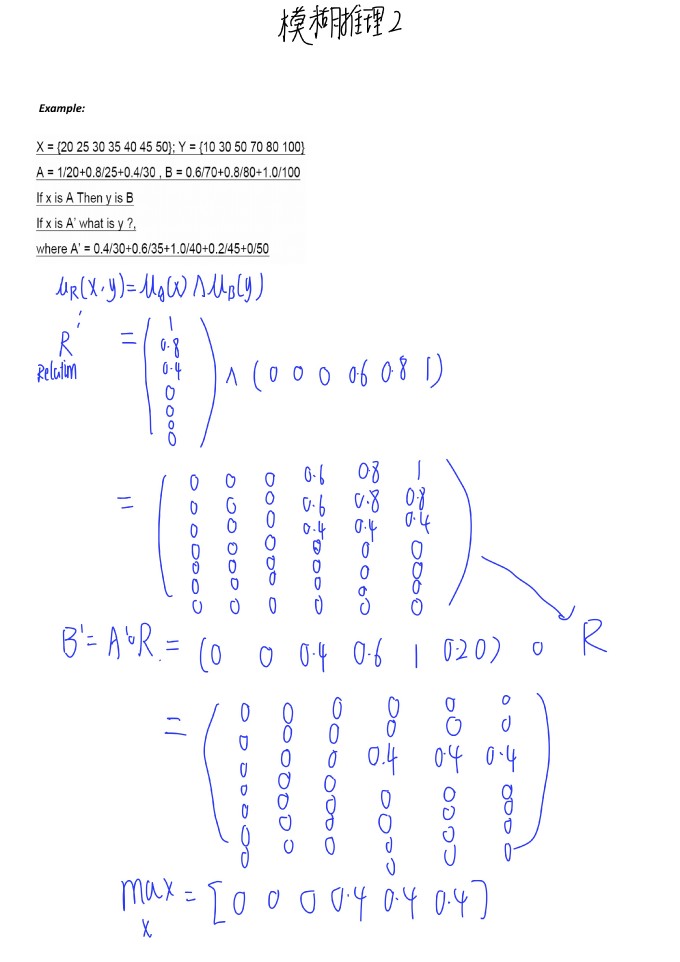 模糊推理2
Example:
X = {20 25 30 35 40 45 50}; Y = {10 30 50 70 80 100}
A = 1/20+0.8/25+0.4/30 , B = 0.6/70+0.8/80+1.0/100
If x is A Then y is B
If x is A' what is y ?,
where A' = 0.4/30+0.6/35+1.0/40+0.2/45+0/50
μR(x,y)=μA(x)∧μB(y)
R
Relation
= ( 1
0.8
0.4
0
0
0
0 ) ∧ (0 0 0 0.6 0.8 1)
= ( 0 0 0 0.6 0.8 1
0 0 0 0.6 0.8 0.8
0 0 0 0.4 0.4 0.4
0 0 0 0 0 0
0 0 0 0 0 0
0 0 0 0 0 0
0 0 0 0 0 0 )
B'=A'∘R = (0 0 0.4 0.6 1 0.2 0) ∘ R
= ( 0 0 0 0 0 0
0 0 0 0 0 0
0 0 0 0.4 0.4 0.4
0 0 0 0 0 0
0 0 0 0 0 0
0 0 0 0 0 0
0 0 0 0 0 0 )
max = [0 0 0 0.4 0.4 0.4]
x